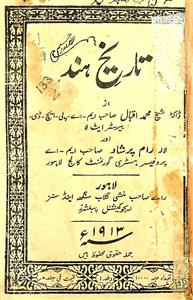 تاریخ ہند
از
ڈاکٹر شیخ محمد اقبال صاحب ایم۔اے۔پی۔ایچ۔ڈی۔
بیرسٹرایٹ لا
اور
لالہ رام پرشاد صاحب ایم۔اے
پروفیسر ہسٹری گورنمنٹ کالج لاہور
لاہور
رائے صاحب منشی گلاب سنگھ اینڈ سنز
ایجوکیشنل پبلشرز
سنہ ۱۹۱۳ء
جملہ حقوق محفوظ ہیں